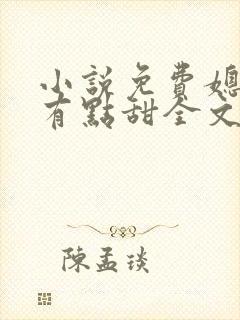 小說免費媳
有點甜全文
陳孟琰